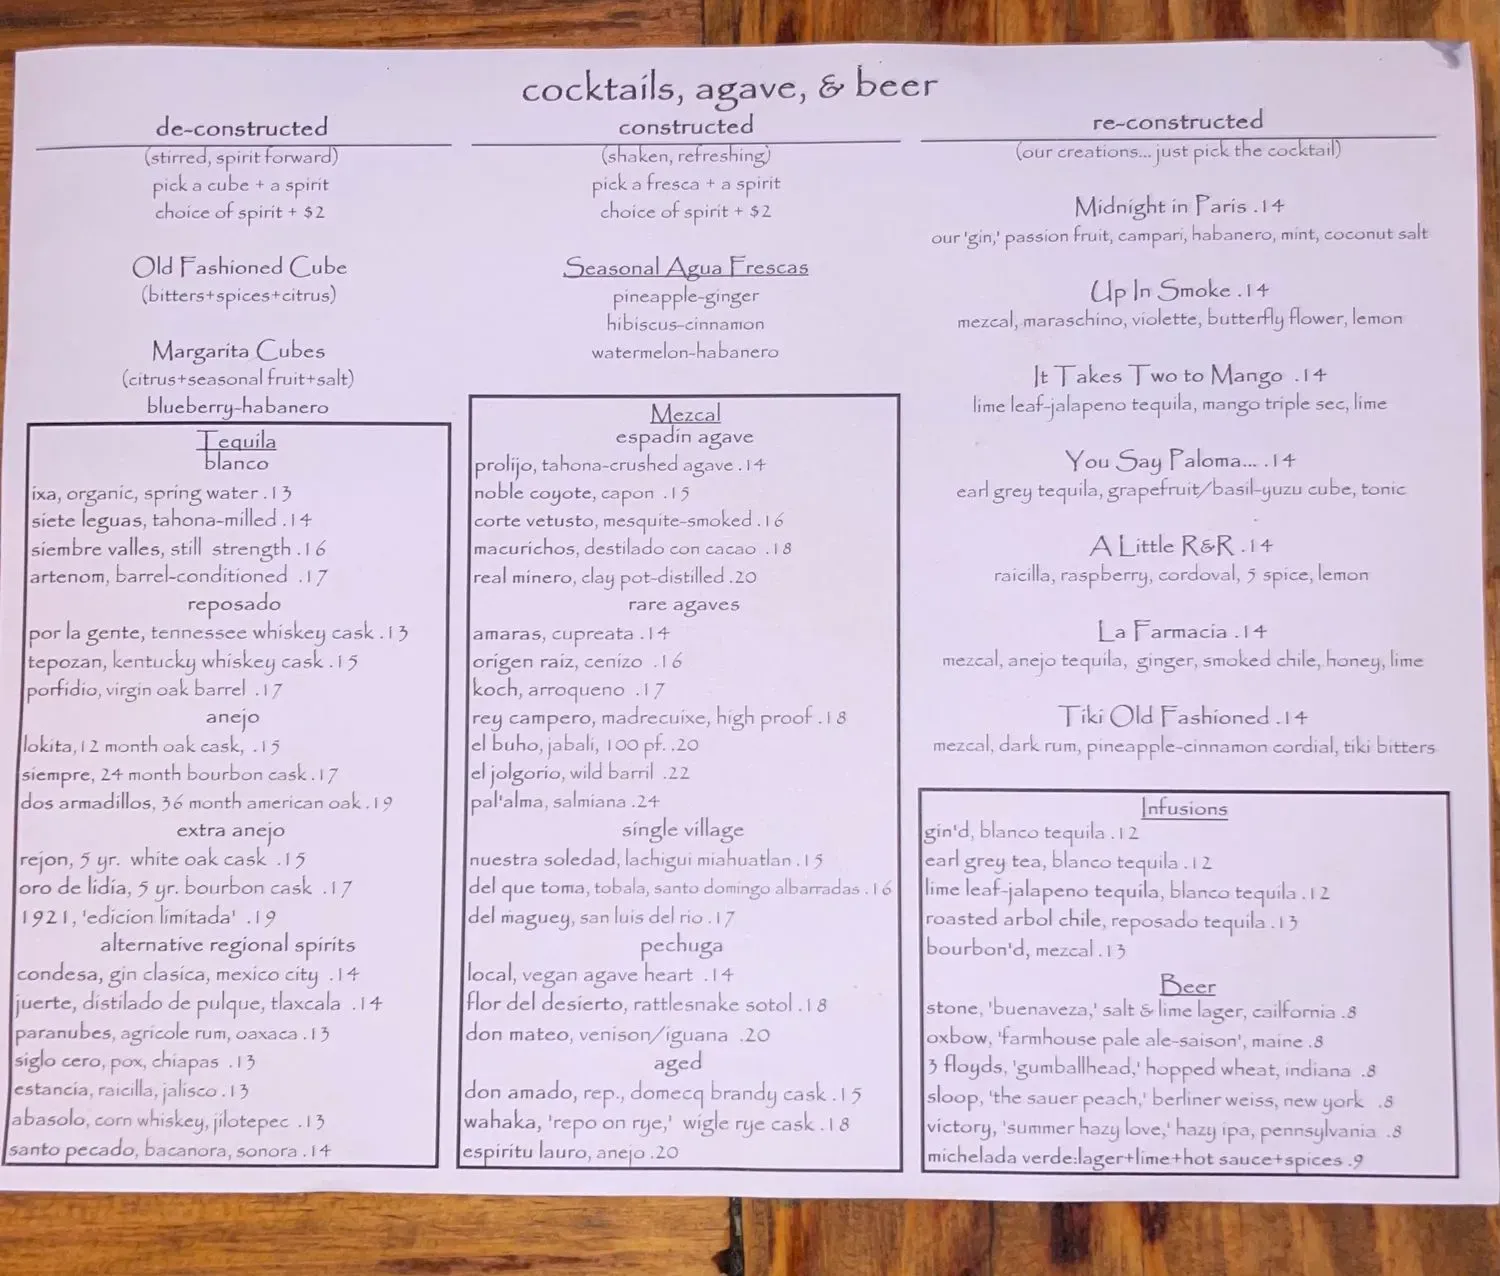 cocktails, agave, & beer
de-constructed
(stirred, spirit forward)
pick a cube + a spirit
choice of spirit + $2
Old Fashioned Cube
(bitters+spices+citrus)
Margarita Cubes
(citrus+seasonal fruit+salt)
blueberry-habanero
Tequila
blanco
ixa, organic, spring water .13
siete leguas, tahona-milled .14
siembre valles, still strength .16
artenom, barrel-conditioned .17
reposado
por la gente, tennessee whiskey cask .13
tepozan, kentucky whiskey cask .15
porfidio, virgin oak barrel .17
anejo
lokita, 12 month oak cask, .15
siempre, 24 month bourbon cask .17
dos armadillos, 36 month american oak .19
extra anejo
rejon, 5 yr. white oak cask .15
oro de lidia, 5 yr. bourbon cask .17
1921, 'edicion limitada' .19
alternative regional spirits
condesa, gin clasica, mexico city .14
juerte, distilado de pulque, tlaxcala .14
paranubes, agricole rum, oaxaca .13
siglo cero, pox, chiapas .13
estancia, raicilla, jalisco .13
abasolo, corn whiskey, jilotepec .13
santo pecado, bacanora, sonora .14
constructed
(shaken, refreshing)
pick a fresca + a spirit
choice of spirit + $2
Seasonal Agua Frescas
pineapple-ginger
hibiscus-cinnamon
watermelon-habanero
Mezcal
espadin agave
prolijo, tahona-crushed agave .14
noble coyote, capon .15
corte vetusto, mesquite-smoked .16
macurichos, destilado con cacao .18
real minero, clay pot-distilled .20
rare agaves
amaras, cupreata .14
origen raiz, cenizo .16
koch, arroqueno .17
rey campero, madrecuixe, high proof .18
el buho, jabali, 100 pf. .20
el jolgorio, wild barril .22
pal'alma, salmiana .24
single village
nuestra soledad, lachigui miahuatlan .15
del que toma, tobala, santo domingo albarradas .16
del maguey, san luis del rio .17
pechuga
local, vegan agave heart .14
flor del desierto, rattlesnake sotol .18
don mateo, venison/iguana .20
aged
don amado, rep., domecq brandy cask .15
wahaka, 'repo on rye,' wigle rye cask .18
espiritu lauro, anejo .20
re-constructed
(our creations... just pick the cocktail)
Midnight in Paris .14
our 'gin,' passion fruit, campari, habanero, mint, coconut salt
Up In Smoke .14
mezcal, maraschino, violette, butterfly flower, lemon
It Takes Two to Mango .14
lime leaf-jalapeno tequila, mango triple sec, lime
You Say Paloma... .14
earl grey tequila, grapefruit/basil-yuzu cube, tonic
A Little R&R .14
raicilla, raspberry, cordoval, 5 spice, lemon
La Farmacia .14
mezcal, anejo tequila, ginger, smoked chile, honey, lime
Tiki Old Fashioned .14
mezcal, dark rum, pineapple-cinnamon cordial, tiki bitters
Infusions
gin'd, blanco tequila .12
earl grey tea, blanco tequila .12
lime leaf-jalapeno tequila, blanco tequila .12
roasted arbol chile, reposado tequila .13
bourbon'd, mezcal .13
Beer
stone, 'buenaveza,' salt & lime lager, cailfornia .8
oxbow, 'farmhouse pale ale-saison', maine .8
3 floyds, 'gumballhead,' hopped wheat, indiana .8
sloop, 'the sauer peach,' berliner weiss, new york .8
victory, 'summer hazy love,' hazy ipa, pennsylvania .8
michelada verde:lager+lime+hot sauce+spices .9